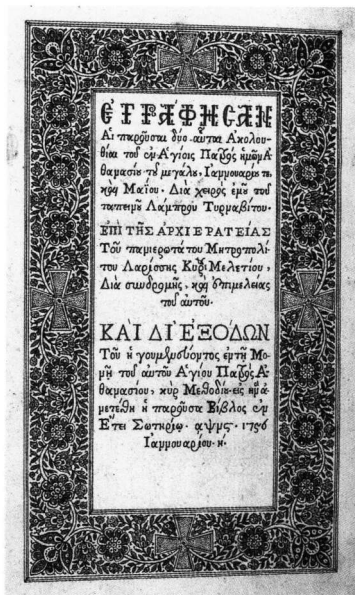 ΕΓΡΑΦΗΣΑΝ
Αἱ παροῦσαι δύο αὗται Ἀκολου-
θίαι τοῦ ἐν Ἁγίοις Πατρὸς ἡμῶν Ἀ-
θανασίου τοῦ μεγάλου, Ἰαννουαρίου τε
καὶ Μαΐου. Διὰ χειρὸς ἐμοῦ τοῦ
ταπεινοῦ Λάμπρου Τυρναβίτου.
ΕΠΙ ΤΗΣ ΑΡΧΙΕΡΑΤΕΙΑΣ
Τοῦ πανιερωτάτου Μητροπολί-
του Λαρίσσης Κυρίου Μελετίου,
Διὰ συνδρομῆς, καὶ ἐπιμελείας
τοῦ αὐτοῦ.
ΚΑΙ ΔΙ ΕΞΟΔΩΝ
Τοῦ ἡγουμενεύοντος ἐν τῇ Μο-
νῇ τοῦ αὐτοῦ Ἁγίου Πατρὸς Ἀ-
θανασίου, κὺρ Μεθοδίου εἰς ἣν ἀ-
νετέθη ἡ παροῦσα Βίβλος ἐν
Ἔτει Σωτηρίῳ. αψπς. 1786
Ἰαννουαρίου. η.